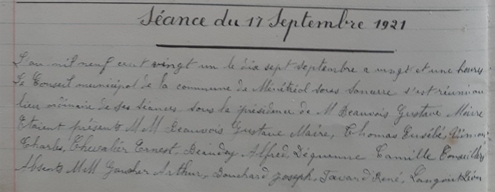 Séance du 17 Septembre 1921
L'an mil neuf cent vingt un le dix sept septembre a vingt et une heures
Le Conseil municipal de la commune de Ménétréol sous Sancerre s'est réuni au
lieu ordinaire de ses séances sous la présidence de M Beauvois Gustave Maire
Etaient présents MM Beauvois Gustave Maire, Thomas Eusèbe,
Charles, Chevalier Ernest, Alfred, Camille Conseillers
Absents MM Arthur, Bouchard Joseph, Tavard René, Léon